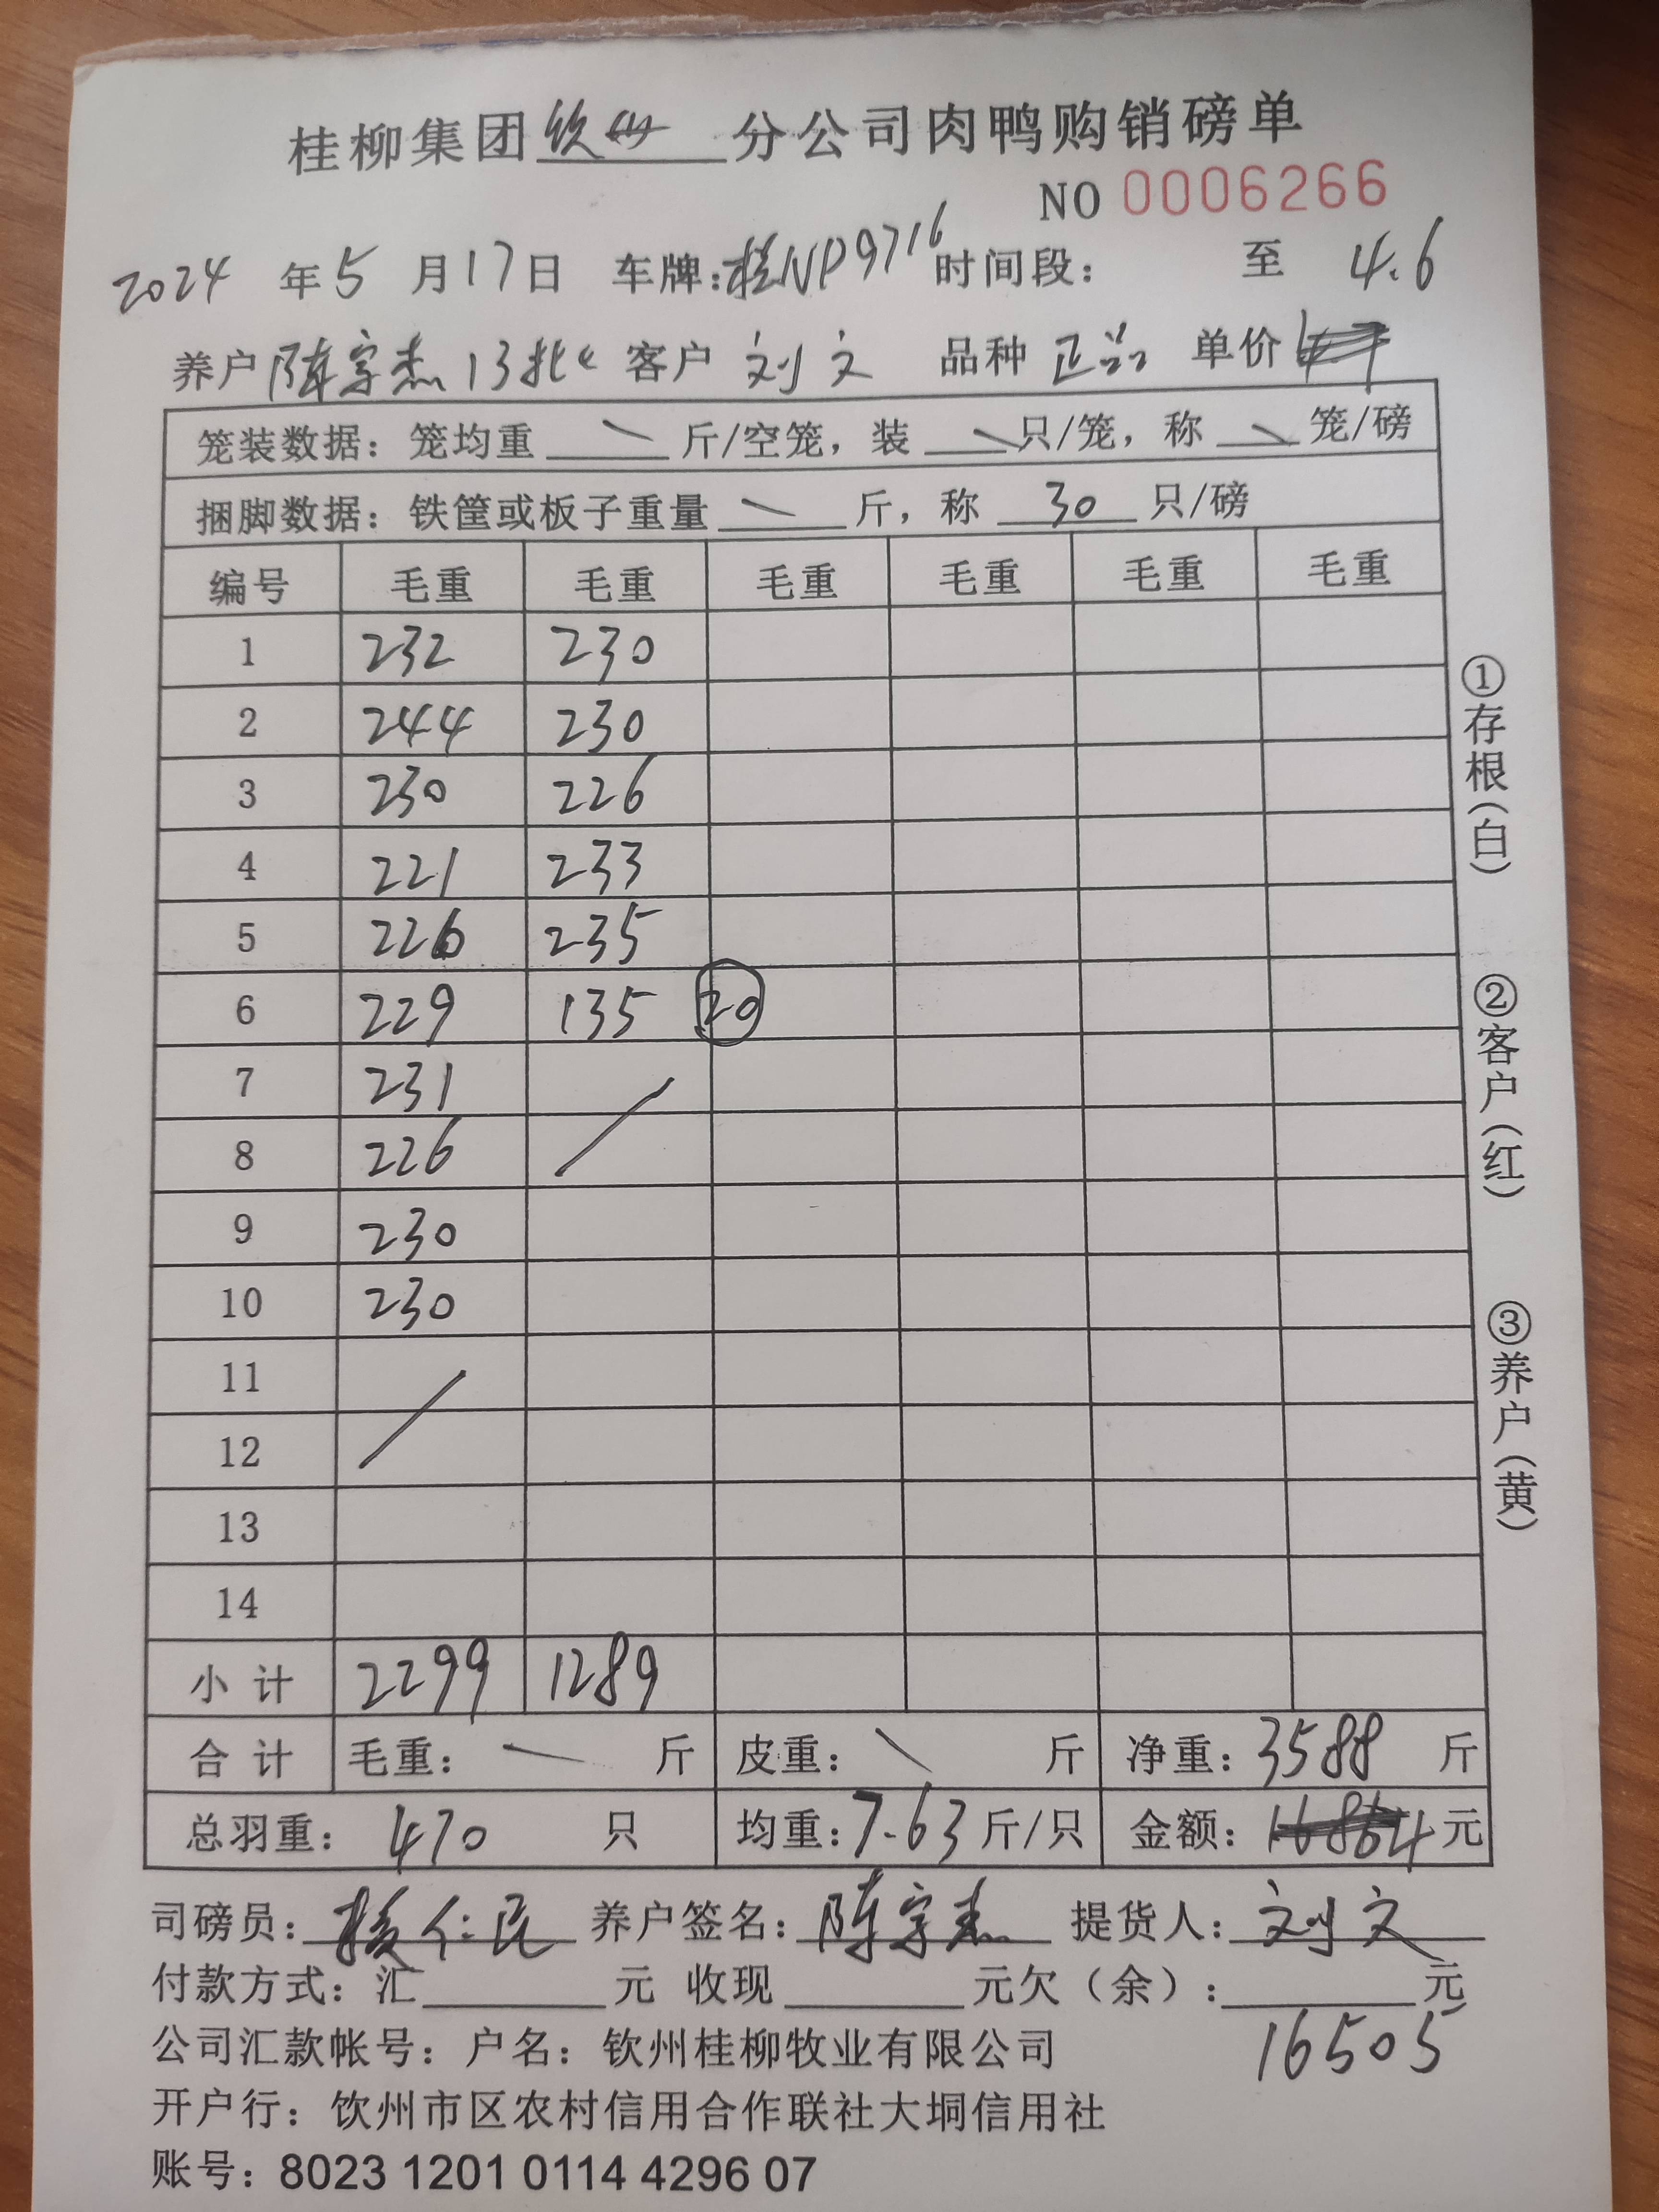 桂柳集团钦州分公司肉鸭购销磅单
NO 0006266
2024年5月17日 车牌:桂NP9716 时间段: 至 4.6
养户 陈宗杰13批 客户 刘文 品种 正品 单价
笼装数据: 笼均重 斤/空笼, 装 只/笼, 称 笼/磅
捆脚数据: 铁筐或板子重量 斤, 称 30 只/磅
编号 毛重 毛重 毛重 毛重 毛重 毛重
1 232 230
2 244 230
3 230 226
4 221 233
5 226 235
6 229 135 20
7 231
8 226
9 230
10 230
11
12
13
14
小计 2299 1289
合计 毛重: 斤 皮重: 斤 净重: 3588 斤
总羽重: 470 只 均重: 7.63 斤/只 金额: 元
司磅员: 仁民 养户签名: 陈宗杰 提货人: 刘文
付款方式: 汇 元 收现 元欠（余）: 元
16505
公司汇款帐号: 户名: 钦州桂柳牧业有限公司
开户行: 钦州市区农村信用合作联社大垌信用社
账号: 8023 1201 0114 4296 07
①存根(白) ②客户(红) ③养户(黄)